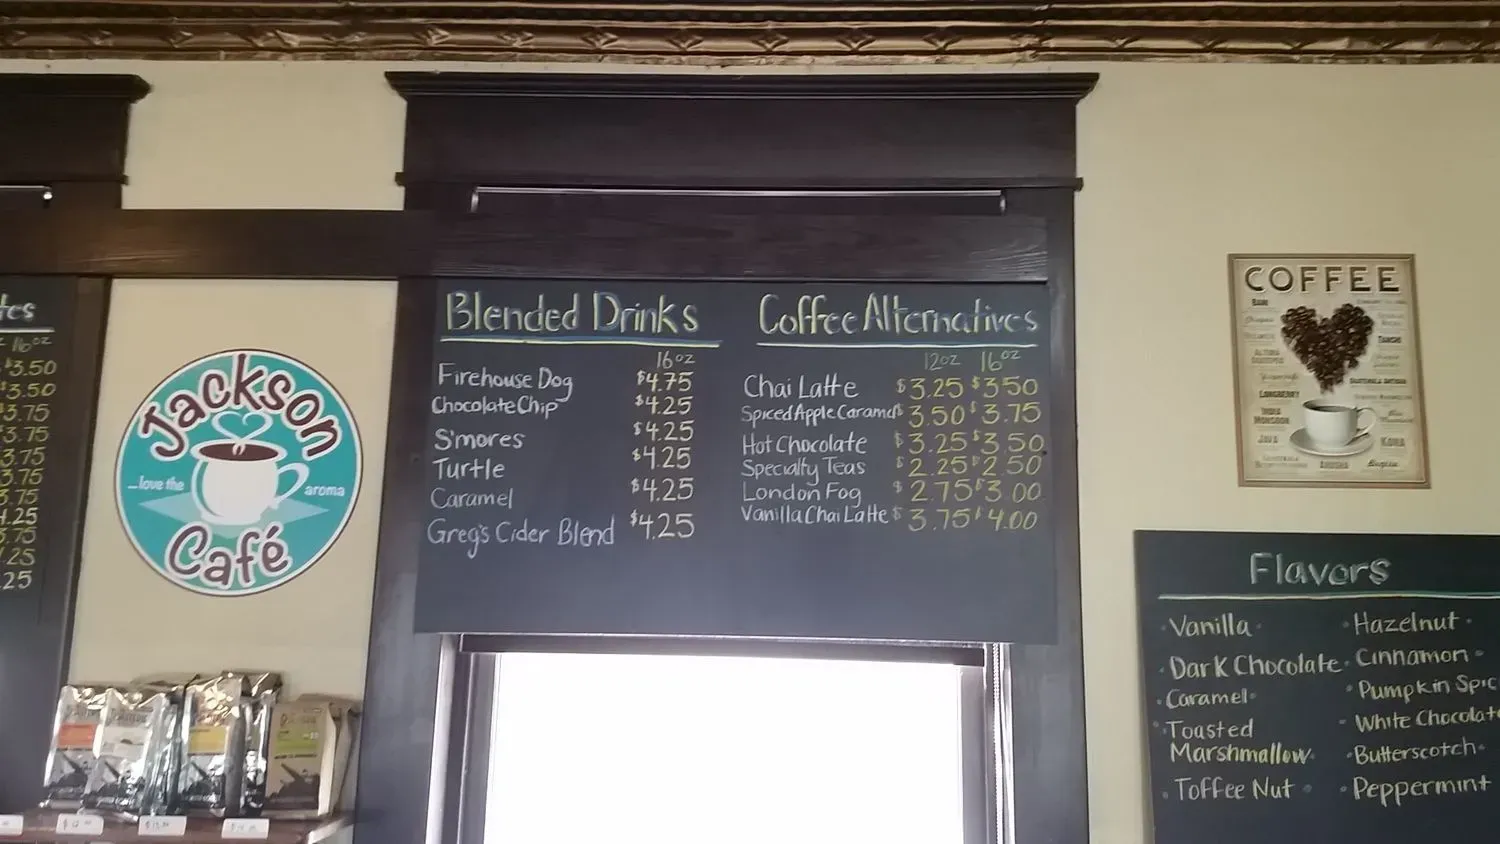 tes
16oz
$3.50
$3.50
3.75
3.75
3.75
3.75
3.75
4.25
3.75
.25
.25
Jackson
...love the aroma
Café
Blended Drinks
16oz
Firehouse Dog $4.75
Chocolate Chip $4.25
S'mores $4.25
Turtle $4.25
Caramel $4.25
Greg's Cider Blend $4.25
Coffee Alternatives
12oz 16oz
Chai Latte $3.25 $3.50
Spiced Apple Caramel $3.50 $3.75
Hot Chocolate $3.25 $3.50
Specialty Teas $2.25 $2.50
London Fog $2.75 $3.00
Vanilla Chai Latte $3.75 $4.00
COFFEE
JAVA
KONA
Flavors
Vanilla
Dark Chocolate
Caramel
Toasted
Marshmallow
Toffee Nut
Hazelnut
Cinnamon
Pumpkin Spic
White Chocolate
Butterscotch
Peppermint